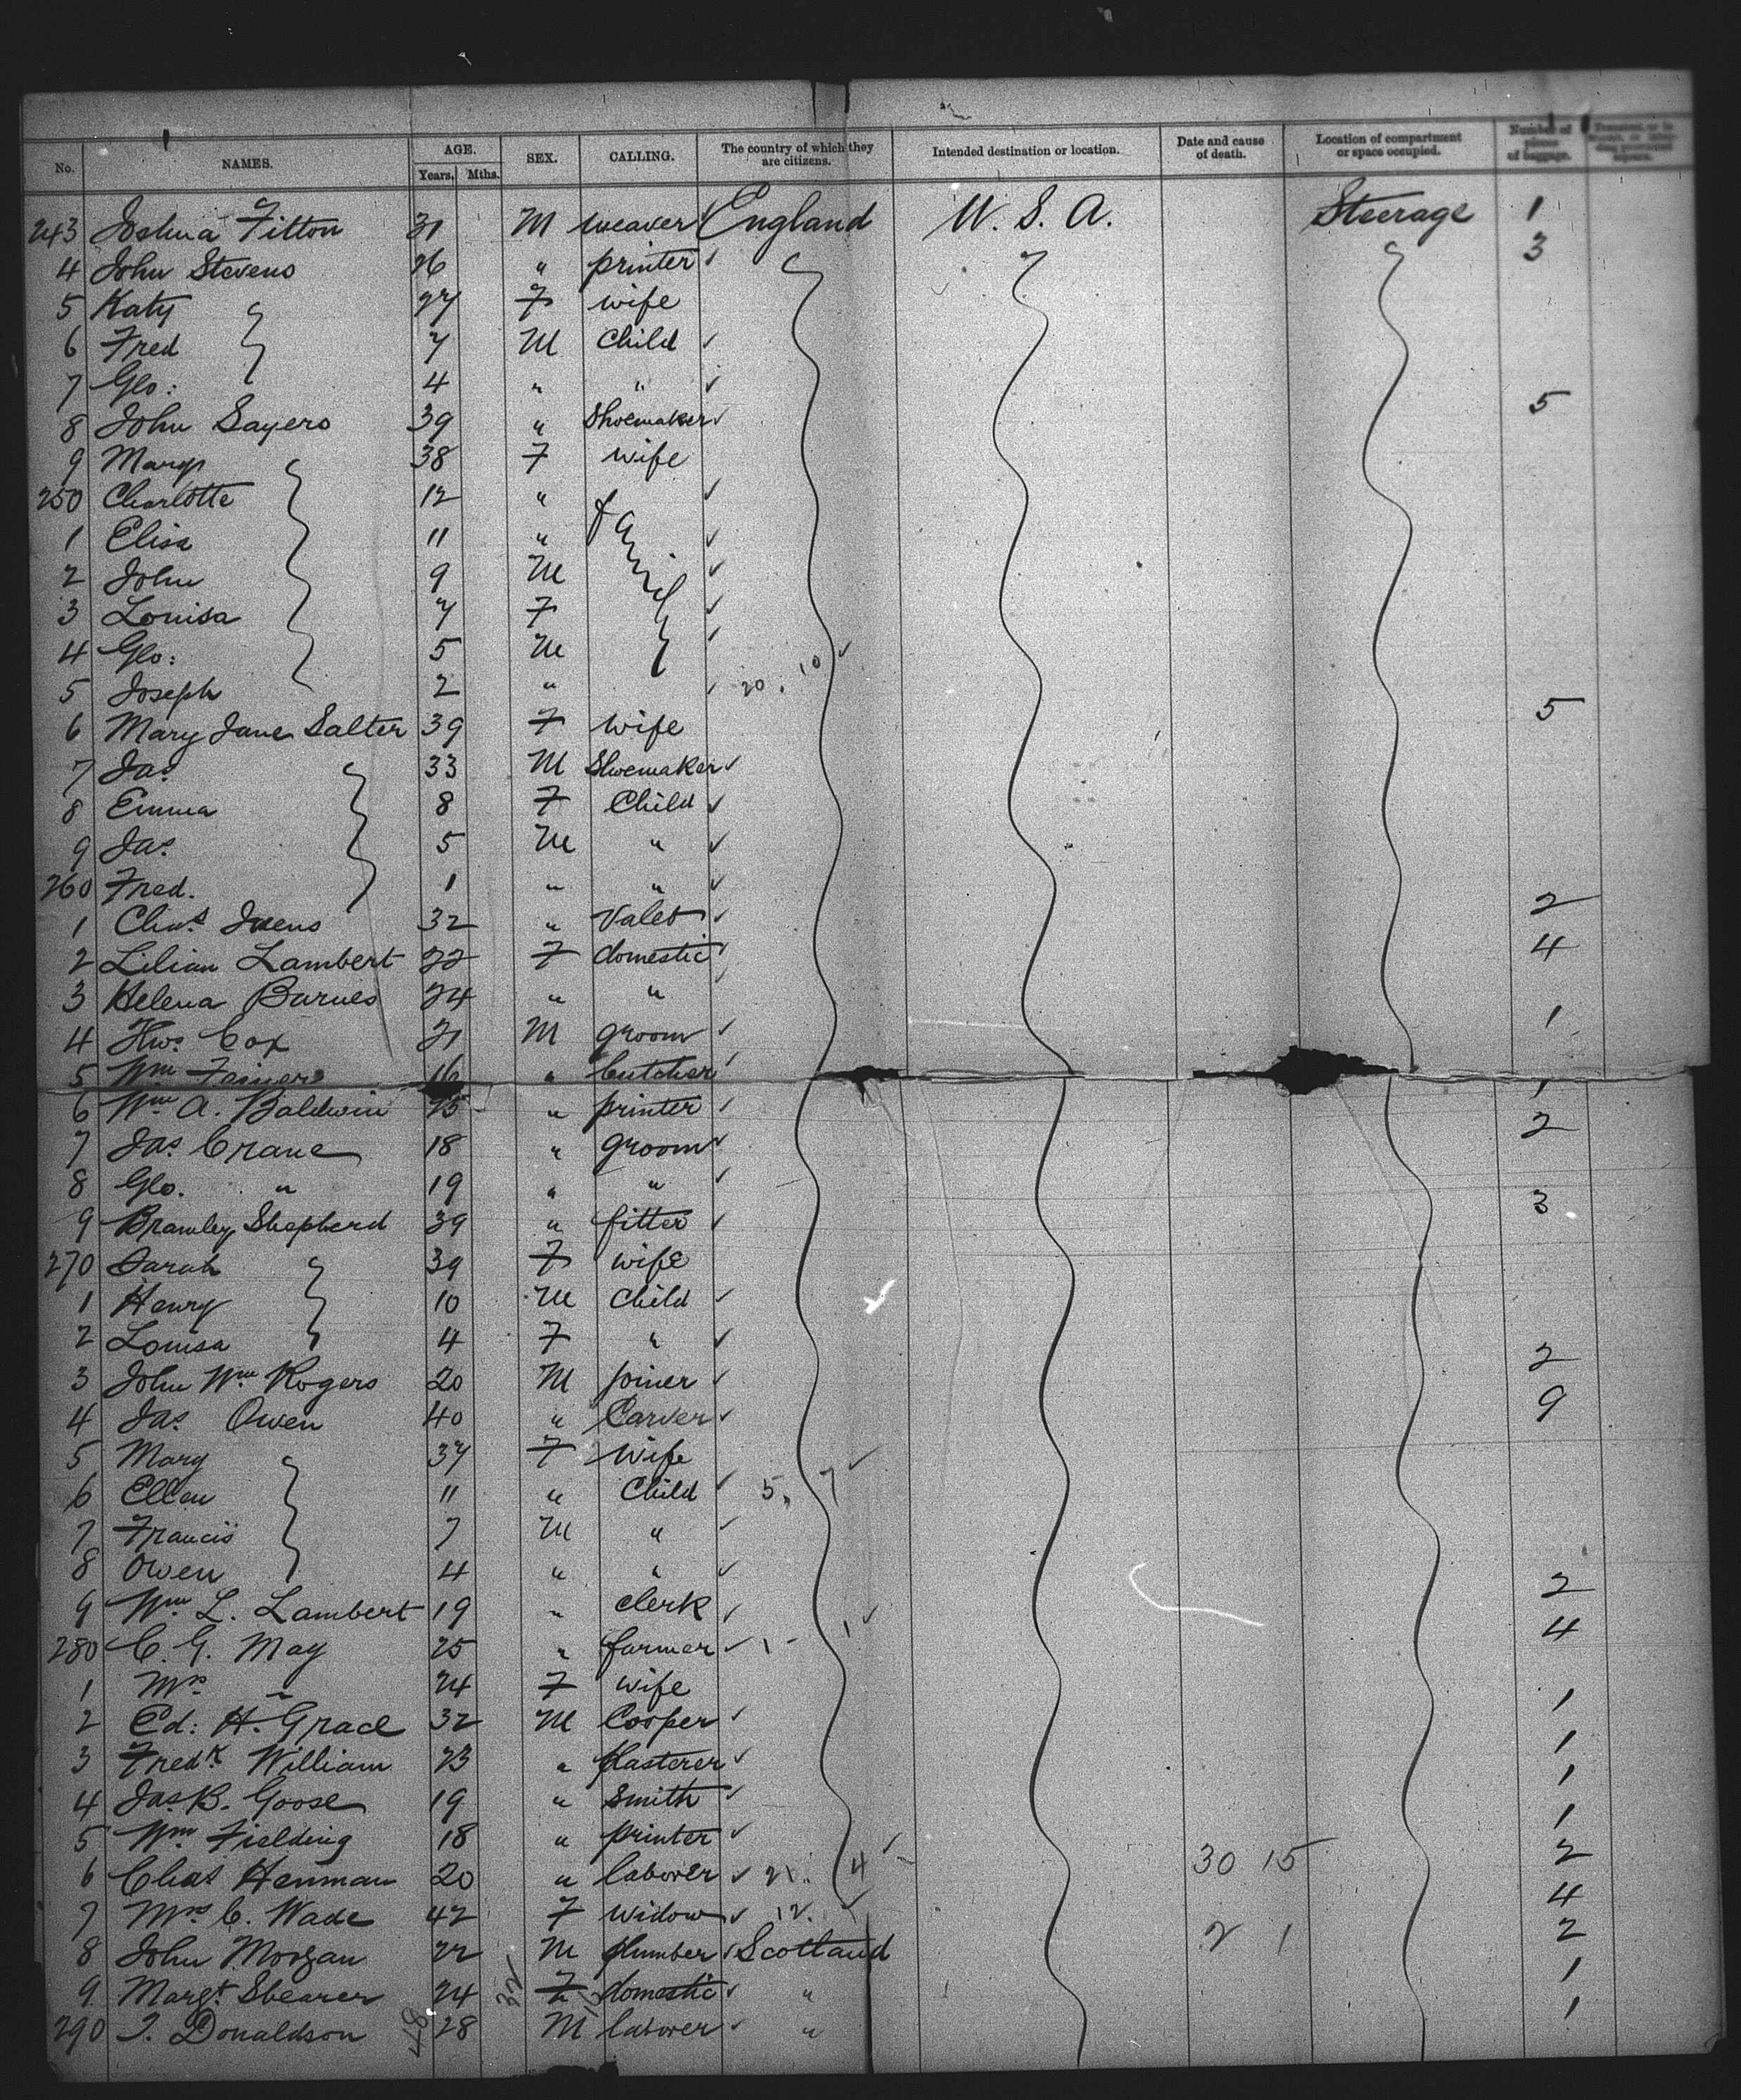 No. NAMES. AGE. Years. Mths. SEX. CALLING. The country of which they are citizens. Intended destination or location. Date and cause of death. Location of compartment or space occupied. Number of pieces of baggage.
243 Joshua Fitton 31 M weaver England U. S. A. Steerage 1
4 John Stevens 26 " printer 3
5 Katy 27 F wife
6 Fred 7 M Child
7 Geo: 4 " "
8 John Sayers 39 " Shoemaker 5
9 Mary 38 F wife
250 Charlotte 12 " family
1 Elisa 11 "
2 John 9 M
3 Louisa 7 F
4 Geo: 5 M
5 Joseph 2 " 20. 10
6 Mary Jane Salter 39 F wife 5
7 Jas 33 M Shoemaker
8 Emma 8 F Child
9 Jas 5 M "
260 Fred. 1 " "
1 Chas. 32 " Valet 2
2 Lilian Lambert 22 F domestic 4
3 Helena Barnes 24 " "
4 Thos Cox 21 M groom 1
5 Wm 16 " butcher
6 Wm A. Baldwin 25 " printer 1
7 Jas Crane 18 " groom 2
8 Geo. " 19 " "
9 Bramley Shepherd 39 " fitter 3
270 Sarah 39 F wife
1 Henry 10 M Child
2 Louisa 4 F "
3 John Wm Rogers 20 M joiner 2
4 Jas Owen 40 " Carver 9
5 Mary 37 F Wife
6 Ellen 11 " Child 5, 7
7 Francis 7 M "
8 Owen 4 " "
9 Wm L. Lambert 19 " clerk 2
280 C. G. May 25 " farmer 1 - 1 4
1 Mrs " 24 F wife
2 Ed: H. Grace 32 M Cooper 1
3 Fredk William 23 " plasterer 1
4 Jas B. Goose 19 " Smith 1
5 Wm Fielding 18 " printer 1
6 Chas Henman 20 " laborer 21. 4 30 15 2
7 Mrs C. Wade 42 F Widow 12. 4
8 John Morgan 22 M plumber Scotland 2 1 2
9 Margt Shearer 24 F domestic " 1
290 J. Donaldson 28 M laborer " 1